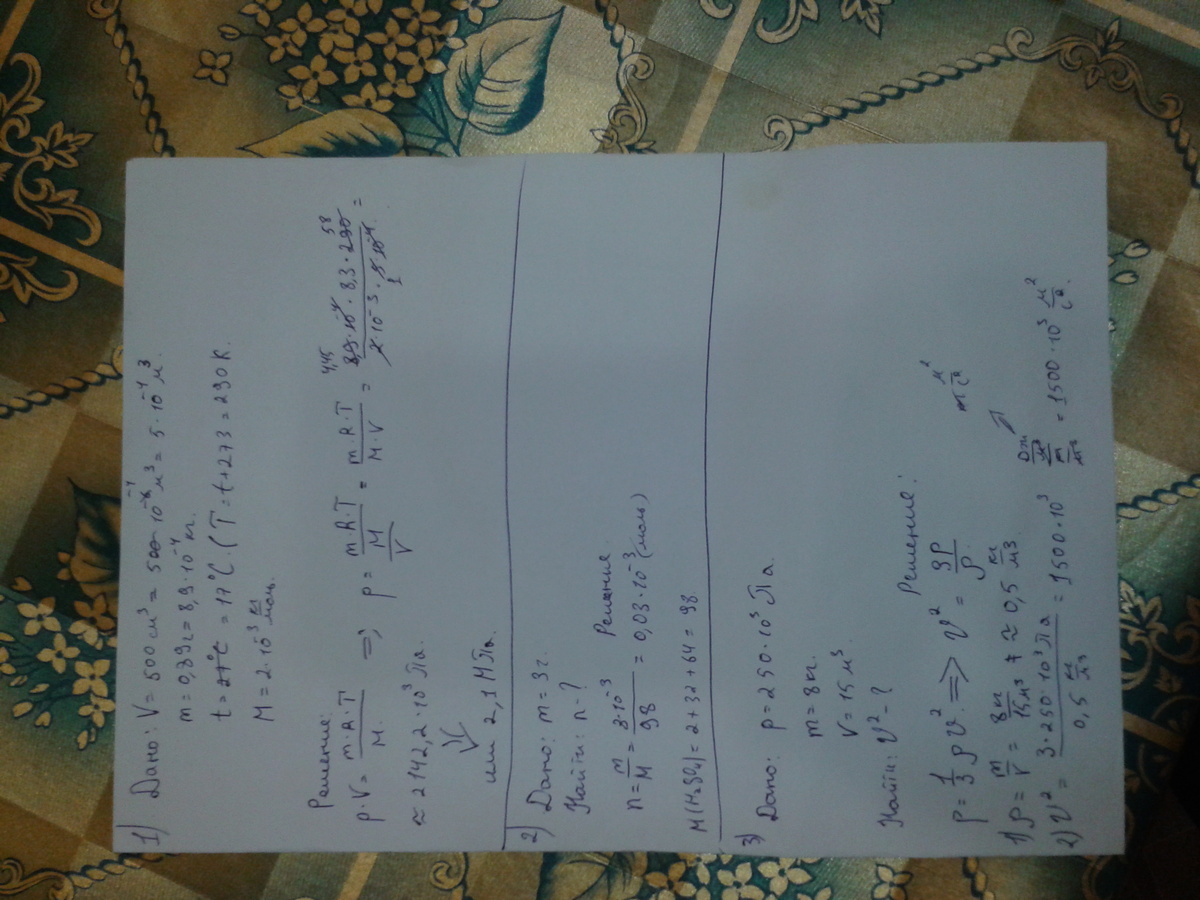 1) Дано: V = 500 см³ = 500·10⁻⁶ м³ = 5·10⁻⁴ м³.
m = 0,89 г = 8,9·10⁻⁴ кг.
t = 17°C. (T = t + 273 = 290 К.
M = 2·10⁻³ кг/моль.
Решение:
p·V = m·R·T/M ⇒ p = (m·R·T/M)/V = m·R·T/(M·V) = 8,9·10⁻⁴·8,3·290/(2·10⁻³·5·10⁻⁴) =
4,45 58 1
≈ 2142,2·10³ Па.
или 2,1 МПа.
2) Дано: m = 3 г.
Найти: n - ?
Решение
n = m/M = 3·10⁻³/98 = 0,03·10⁻³ (моль)
M(H₂SO₄) = 2 + 32 + 64 = 98
3) Дано: p = 250·10³ Па.
m = 8 кг.
V = 15 м³
Найти: v² - ?
Решение:
p = 1/3 ρ v² ⇒ v² = 3p/ρ
1) ρ = m/V = 8 кг/15 м³ ≈ 0,5 кг/м³
2) v² = 3·250·10³ Па/(0,5 кг/м³) = 1500·10³ = 1500·10³ м²/с²